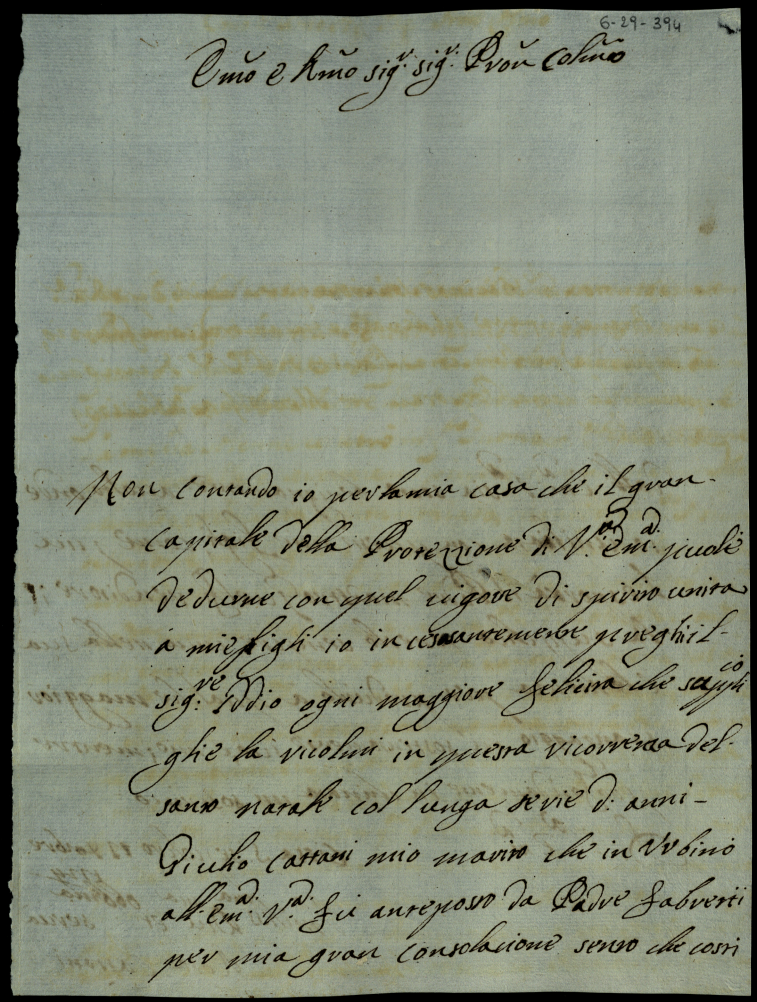 6-29-394
Emo e Rmo sigr. sigr. Pron Colmo
Non contando io per la mia casa che il gran
capitale della Protezione di V.a Em.a puole
dedurne con quel vigore di spirito unita
a miei figli io incessantemente preghi il
sig.re Iddio ogni maggiore felicità che io suppli
glie la ricolmi in questa ricorrenza del
santo natale col lunga serie d: anni
Giulio Cattani mio marito che in Urbino
all. Em.a V.a fù anteposto da Padre Fabretti
per mia gran consolacione sento che costi